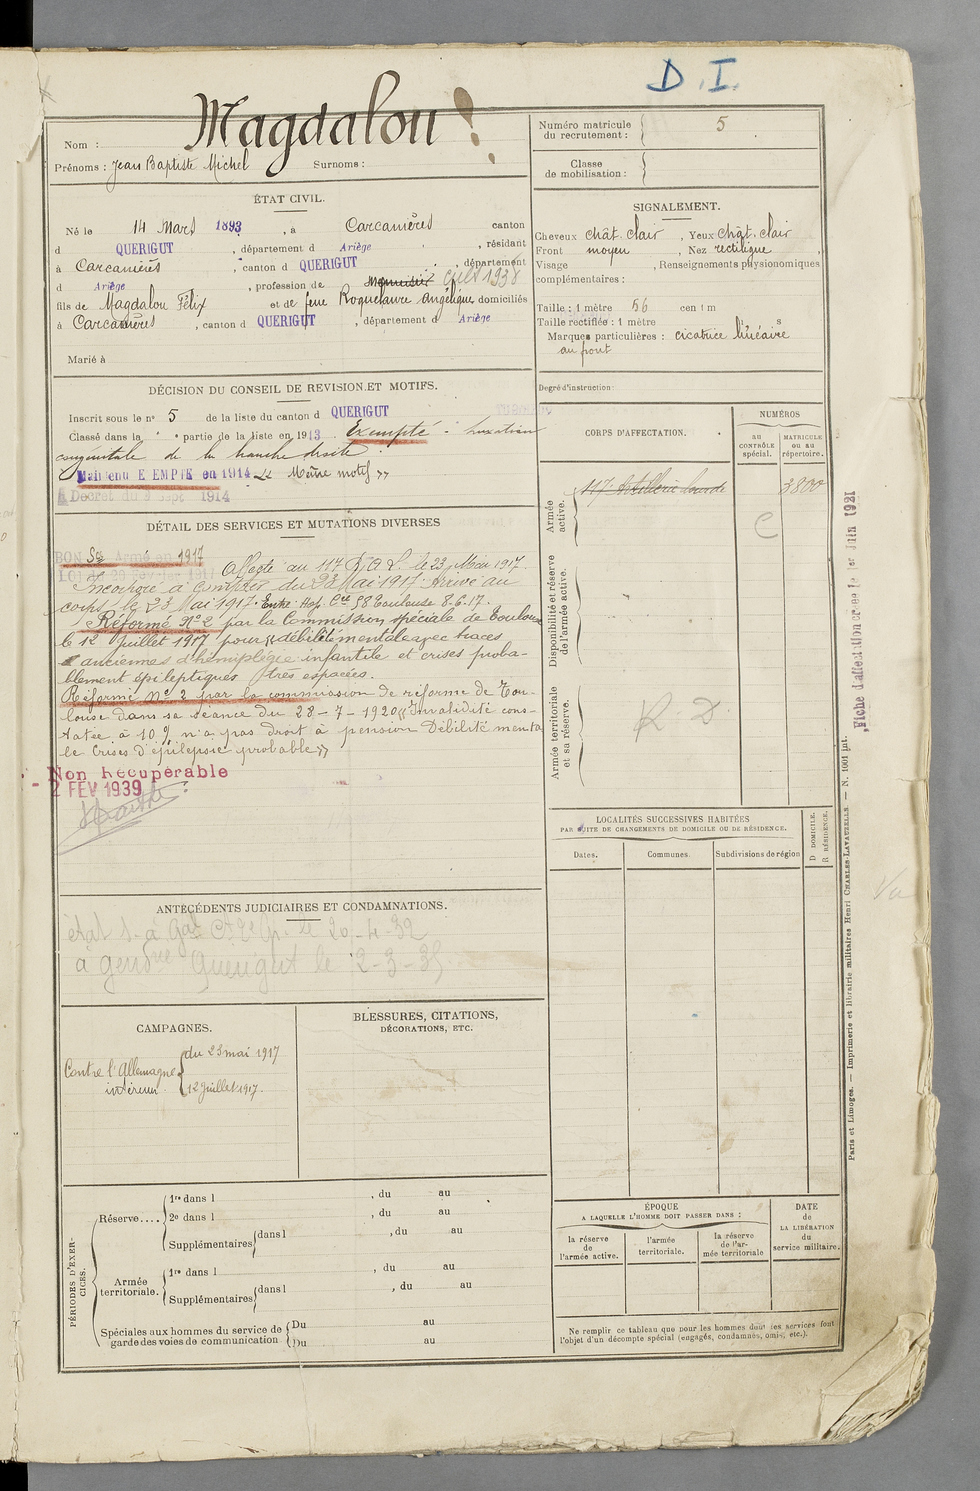 D. I.
Nom : Magdalou
Prénoms : Jean Baptiste Michel Surnoms :
Numéro matricule du recrutement : 5
Classe de mobilisation :
ÉTAT CIVIL.
Né le 14 Mars 1893, à Carcanières canton
d QUERIGUT, département d Ariège, résidant
à Carcanières, canton d QUERIGUT, département
d Ariège, profession de cult 1938
fils de Magdalou Félix et de feue Roquelaure Angélique domiciliés
à Carcanières, canton d QUERIGUT, département d Ariège
Marié à
SIGNALEMENT.
Cheveux chât. clair, Yeux chât. clair
Front moyen, Nez rectiligne,
Visage , Renseignements physionomiques
complémentaires :
Taille : 1 mètre 56 centim
Taille rectifiée : 1 mètre
Marques particulières : cicatrice linéaire
au front
Degré d'instruction :
DÉCISION DU CONSEIL DE REVISION ET MOTIFS.
Inscrit sous le n° 5 de la liste du canton d QUERIGUT
Classé dans la " " partie de la liste en 1913. Exempté : Luxation
congénitale de la hanche droite.
Maintenu EXEMPTÉ en 1914 « Même motif »
Décret du 9 Sept 1914
DÉTAIL DES SERVICES ET MUTATIONS DIVERSES
BON Sce Armé en 1917
Loi du 20 Affecté au 117 R.A.L. le 23 Mai 1917.
Incorporé à compter du 23 Mai 1917. Arrivé au
corps le 23 Mai 1917. Entré Hop. Cre 58 Toulouse 8.6.17.
Réformé N° 2 par la Commission spéciale de Toulouse
le 12 Juillet 1917 pour « débilité mentale avec traces
anciennes d'hémiplégie infantile et crises proba-
blement épileptiques très espacées.
Réformé N° 2 par la commission de réforme de Tou-
louse dans sa séance du 28-7-1920 « Invalidité cons-
tatée à 10 % n'a pas droit à pension Débilité menta
le Crises d'épilepsie probable »
Non Récupérable
- 2 FEV 1939
CORPS D'AFFECTATION.
NUMÉROS
AU CONTRÔLE spécial.
MATRICULE OU AU répertoire.
Armée active.
117 Artillerie lourde 3800
C
Disponibilité et réserve de l'armée active.
Armée territoriale et sa réserve.
R. D.
Fiche d'affectation créée le 1er Juin 1931
LOCALITÉS SUCCESSIVES HABITÉES
PAR SUITE DE CHANGEMENTS DE DOMICILE OU DE RÉSIDENCE.
Dates. Communes. Subdivisions de région
D DOMICILE.
R RÉSIDENCE.
ANTÉCÉDENTS JUDICIAIRES ET CONDAMNATIONS.
le 20-4-32
à gendrie Quérigut le 2-3-35
CAMPAGNES.
Contre l'Allemagne du 23 mai 1917
intérieur 12 Juillet 1917.
BLESSURES, CITATIONS,
DÉCORATIONS, ETC.
PÉRIODES D'EXERCICES.
Réserve....
1re dans l , du au
2e dans l , du au
Supplémentaires dans l , du au
Armée territoriale.
1re dans l , du au
Supplémentaires dans l , du au
Spéciales aux hommes du service de garde des voies de communication
Du au
Du au
ÉPOQUE
A LAQUELLE L'HOMME DOIT PASSER DANS :
la réserve de l'armée active.
l'armée territoriale.
la réserve de l'armée territoriale
DATE de LA LIBÉRATION du service militaire.
Ne remplir ce tableau que pour les hommes dont les services font
l'objet d'un décompte spécial (engagés, condamnés, omis, etc.).
Paris et Limoges. — Imprimerie et librairie militaires Henri CHARLES-LAVAUZELLE. — N. 1001 int.